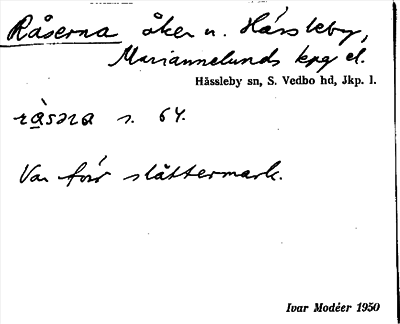 Råserna åker n. Hässleby,
Mariannelunds kpg el.
Hässleby sn, S. Vedbo hd, Jkp. l.
s. 64.
Var förr slåttermark.
Ivar Modéer 1950